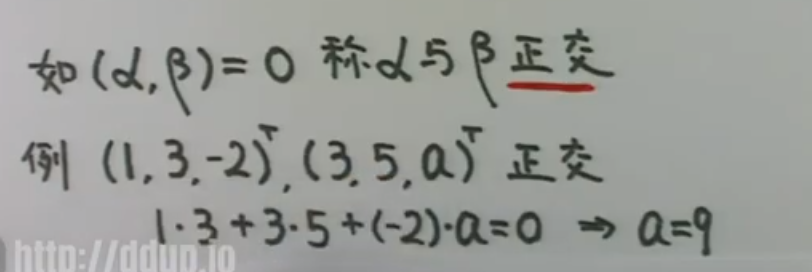 如(α,β)=0 称α与β正交
例 (1,3,-2)ᵀ,(3,5,a)ᵀ 正交
1·3+3·5+(-2)·a=0 ⇒ a=9
http://ddup.io